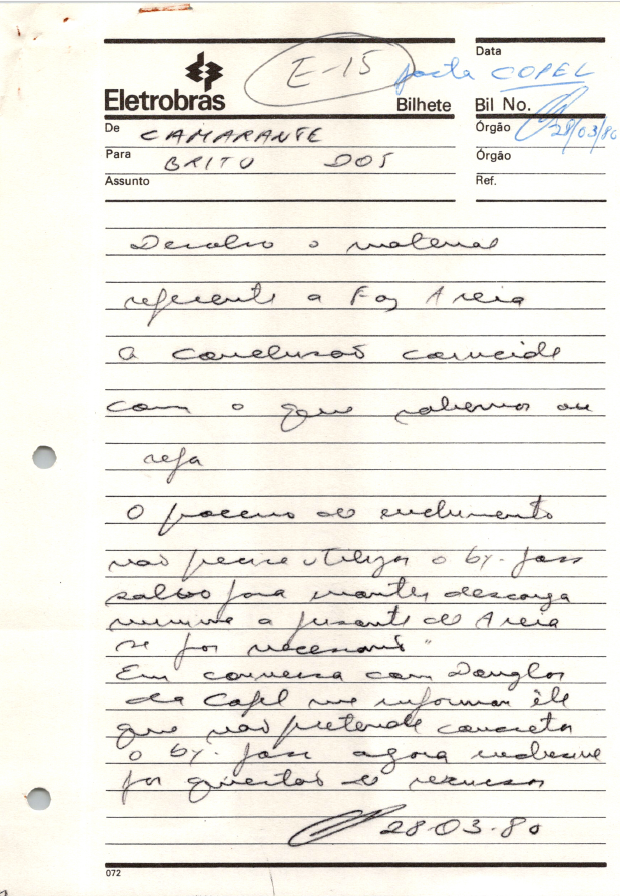 E-15
pasta COPEL
Data
Eletrobras
Bilhete
Bil No.
De CAMARANTE
Órgão 28/03/80
Para BRITO DOS
Órgão
Assunto
Ref.
Devolvo o material
referente a Foz Areia
a conclusão coincide
com o que sabemos ou
seja
O processo de enchimento
não precisa utilizar o by-pass
salvo para manter descarga
minima a jusante de Areia
se for necessario"
Em conversa com Douglas
da Copel me informou êle
que não pretende concretar
o by-pass agora inclusive
por questão de recursos
28-03-80
072